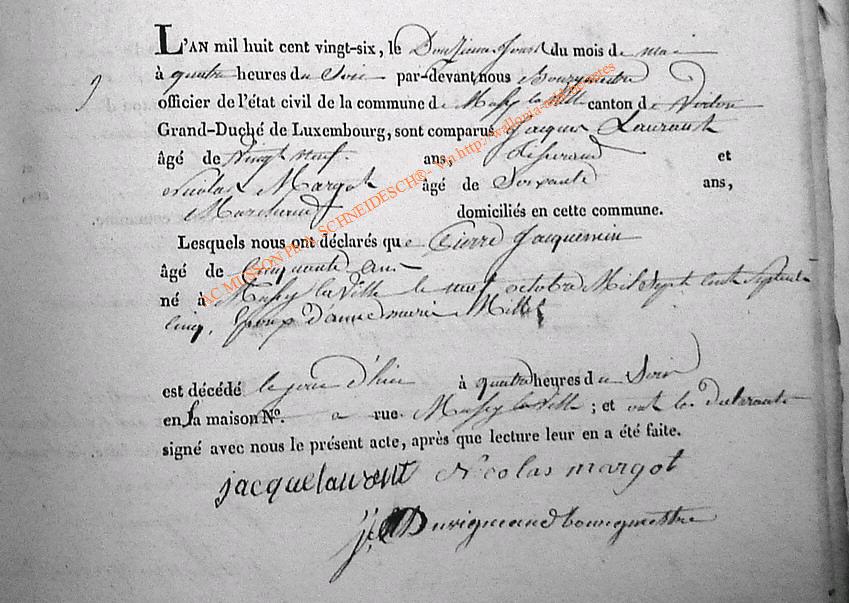 L'AN mil huit cent vingt-six, le Douzieme Jour du mois de mai
à quatre heures du Soir par-devant nous Bourgmestre
officier de l'état civil de la commune de Mussy la Ville canton de Virton
Grand-Duché de Luxembourg, sont comparus Jacques Laurent
âgé de vingt neuf ans, et
Nicolas Margot âgé de Soixante ans,
Marchand domiciliés en cette commune.
Lesquels nous ont déclarés que Pierre Jacquemin
âgé de Cinquante ans
né à Mussy la Ville le neuf octobre Mil Sept Cent Septante
Cinq, Epoux d'anne marie Millet
est décédé le jour d'hier à quatre heures du Soir
en sa maison N°. a rue Mussy la Ville ; et ont les declarants
signé avec nous le présent acte, après que lecture leur en a été faite.
jacque laurent Nicolas margot
Duvigneaud bourgmestre
AC MUSSON PR A. SCHNEIDESCH® - Via http://wallonia-